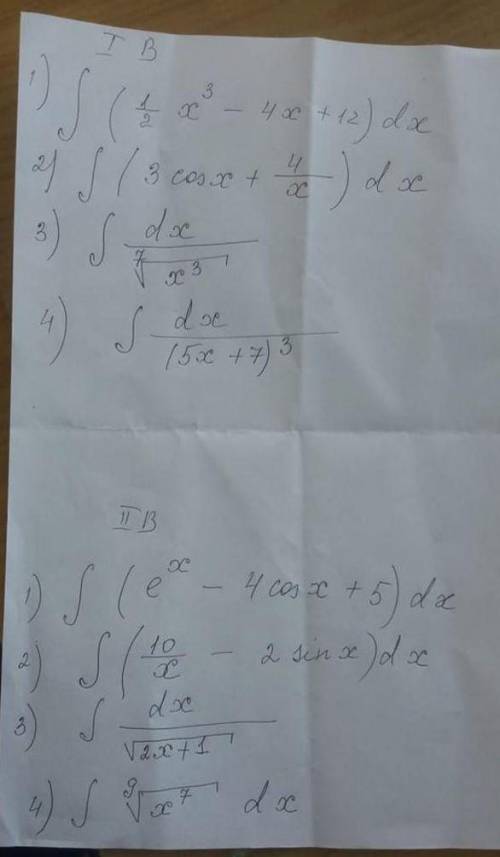 I В
1) ∫ (1/2 x³ − 4x + 12) dx
2) ∫ (3 cosx + 4/x) dx
3) ∫ dx/⁷√x³
4) ∫ dx/(5x + 7)³
II В
1) ∫ (eˣ − 4 cosx + 5) dx
2) ∫ (10/x − 2 sinx) dx
3) ∫ dx/√2x+1
4) ∫ ⁹√x⁷ dx